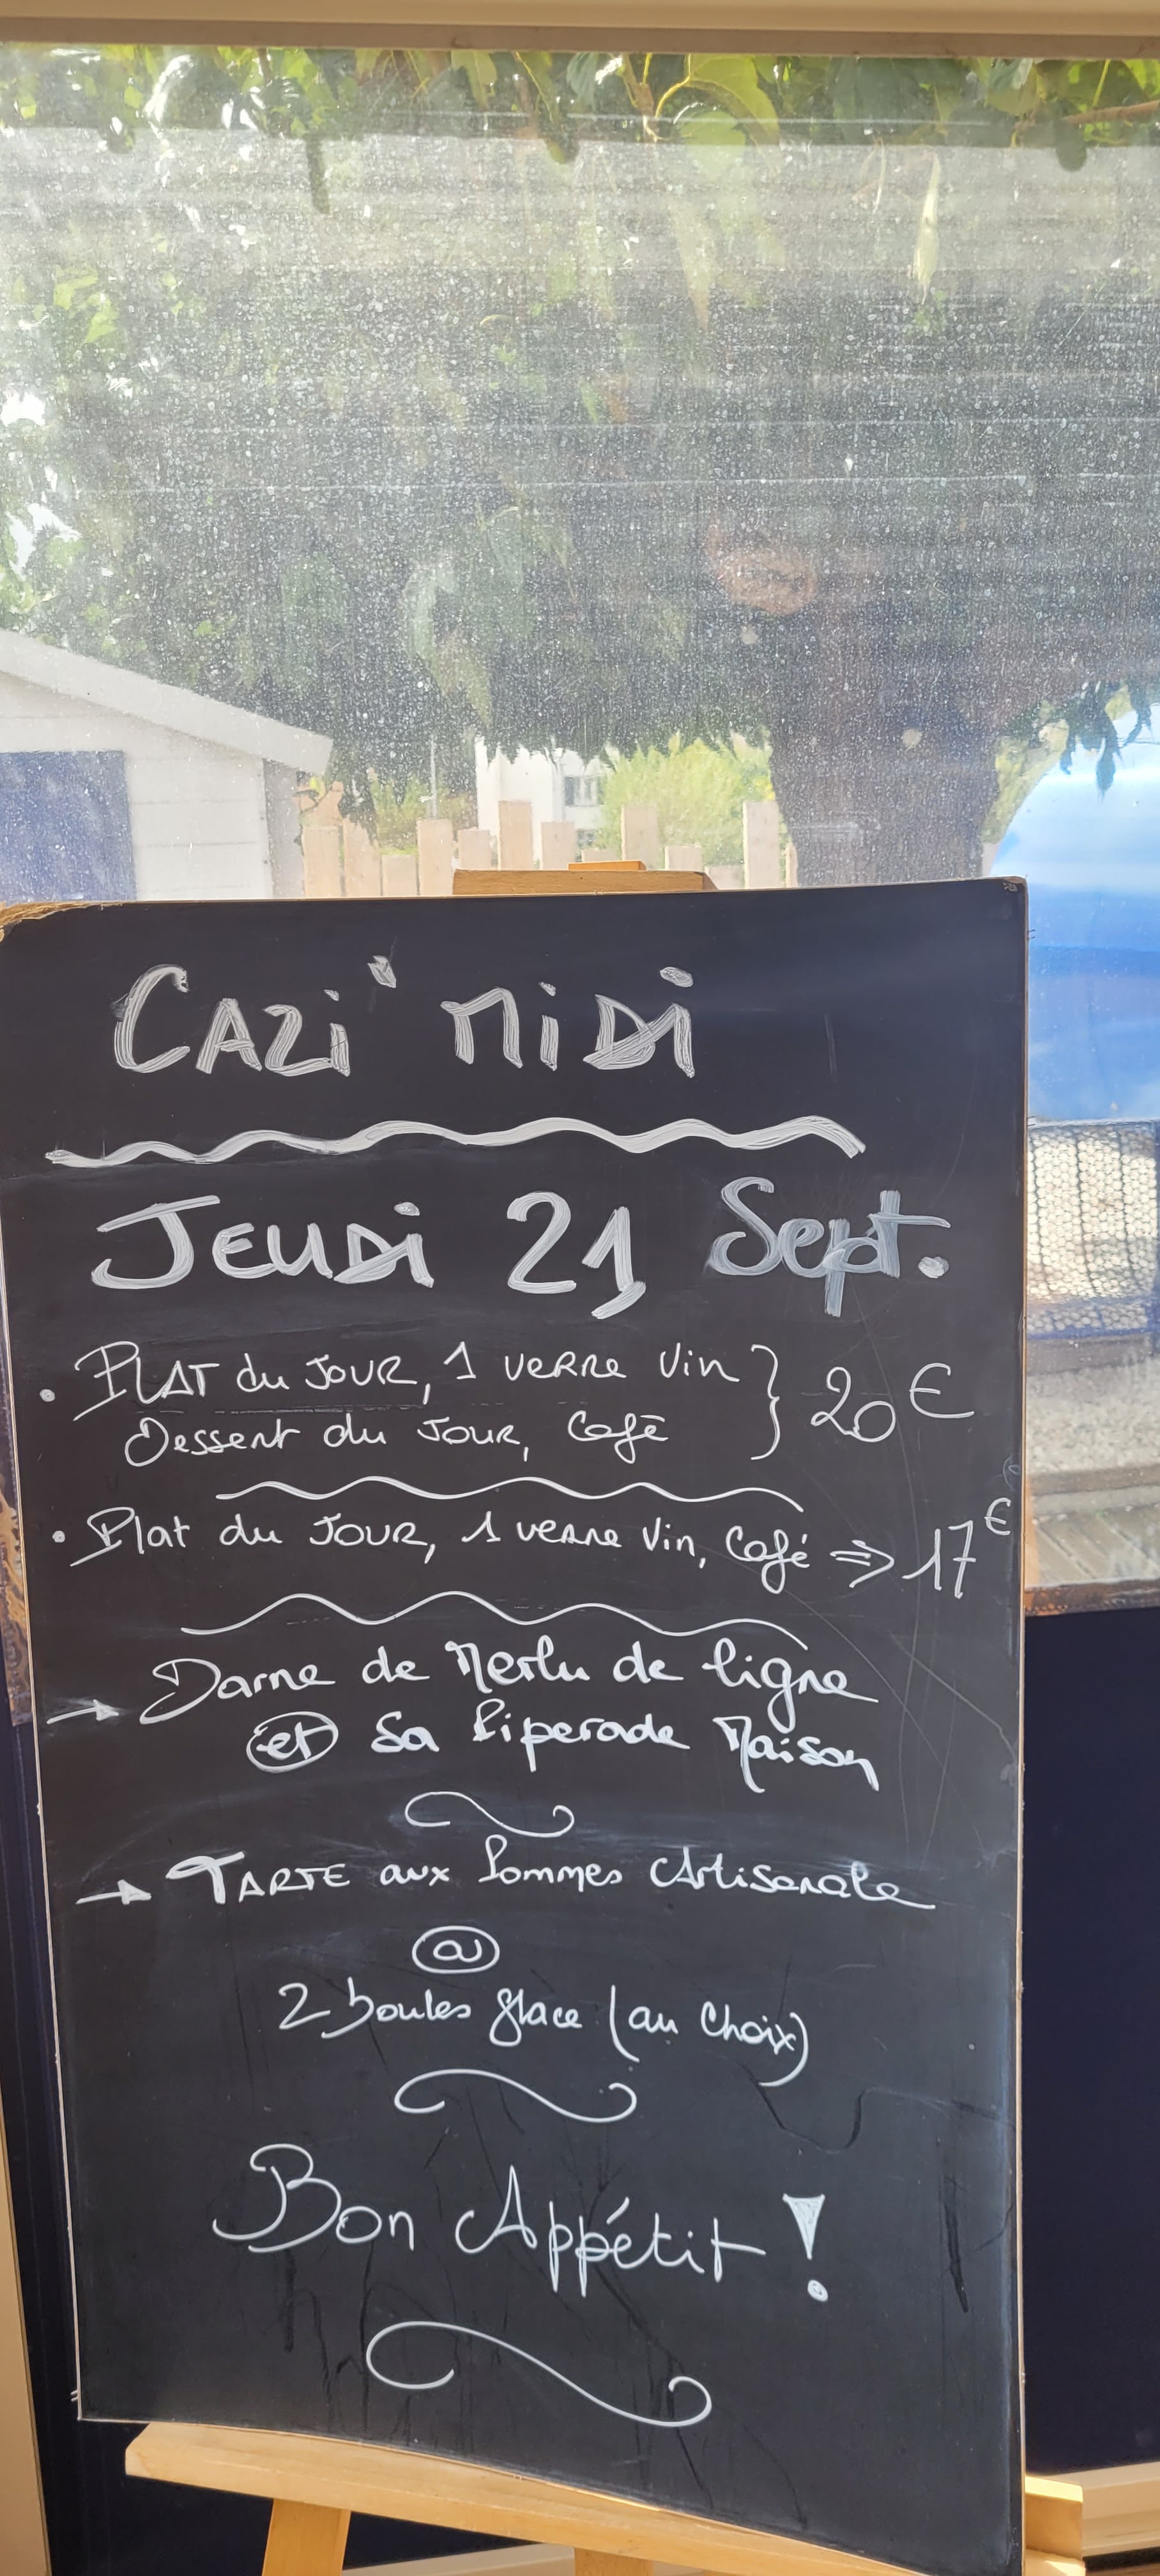 CAZI' MIDI
JEUDI 21 Sept.
• PLAT du JOUR, 1 VERRE Vin } 20 €
Dessert du JOUR, Café
• Plat du JOUR, 1 VERRE Vin, Café ⇒ 17€
→ Darne de Merlu de ligne
et sa Piperade Maison
→ TARTE aux Pommes Artisanale
2 boules glace (au choix)
Bon Appétit !